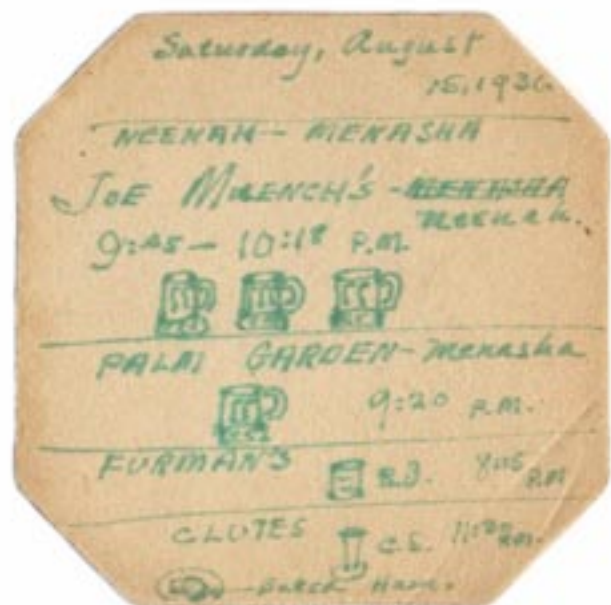 Saturday, August
15, 1936.
NEENAH - MENASHA
JOE MUENCH'S - MENASHA
Neenah.
9:45 - 10:18 P.M.
PALM GARDEN - Menasha
9:20 P.M.
FURMAN'S B.B. P.M
CLUTES C.S. P.M.
Ham.